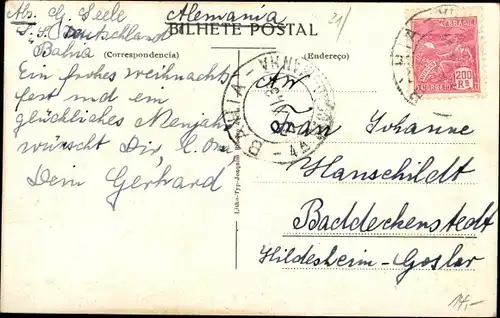 Abs. G. Seele
Alemania
21/
S. S. Deutschland
BILHETE POSTAL
Bahia
(Correspondencia)
(Endereço)
Ein frohes Weihnachts
fest und ein
glückliches Neujahr
wünscht Dir, l. On
Dein Gerhard
An
Johanne
Hanschildt
Baddeckenstedt
Hildesheim-Goslar
BAHIA
BRASIL
200
RS
Litho-Typ-Joaquim
14,-